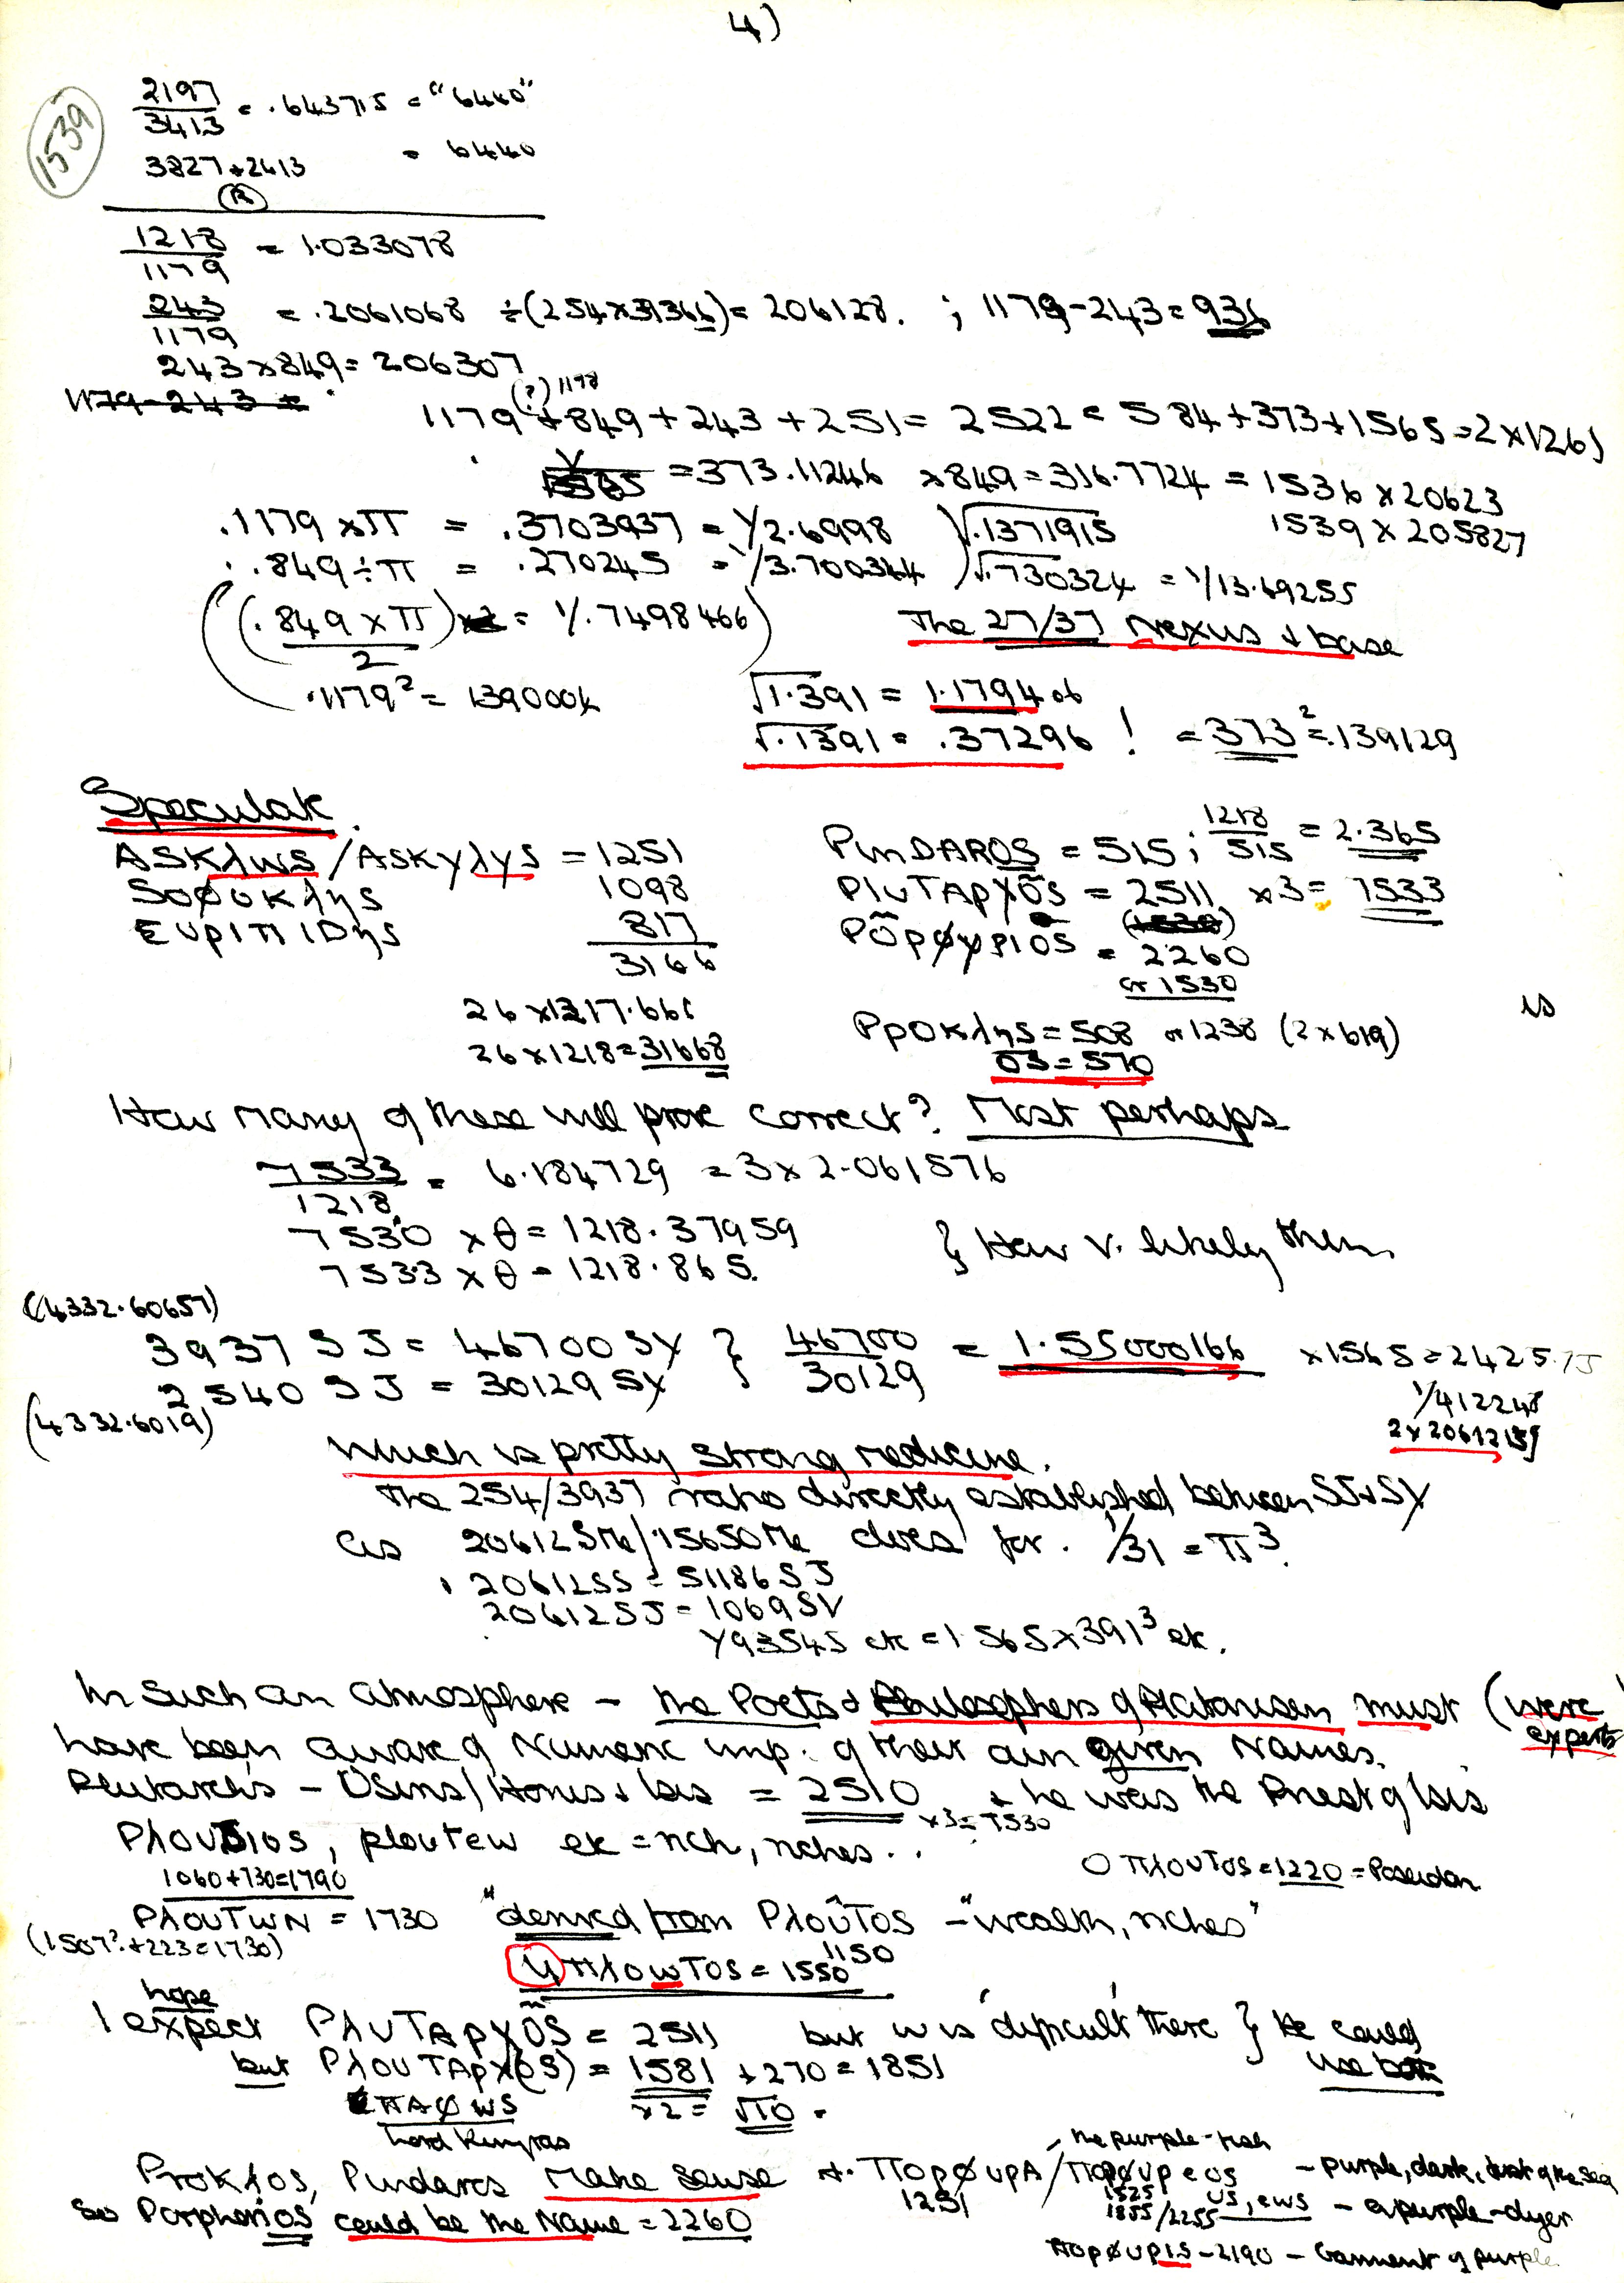 4)
1539
2197/3413 = .643715 = "6440"
3827+2413 = 6440
(R)
1218/1179 = 1.033078
243/1179 = .2061068 ÷(254×39366)= 206128. ; 1179-243=936
243×849=206307
1179-243=
(?) 1178
1179+849+243+251= 2522= 584+373+1565=2×1261
=373.11246 ×849=316.7724=1536×20623
1539×205827
.1179×π = .3703937=1/2.6998 √.1371915
.849÷π = .270245 =1/3.700344 √.730324 = 1/13.69255
((.849×π)/2 = 1/.7498466)
The 27/37 Nexus + base
.1179²= 139000k
√1.391 = 1.179406
√.1391 = .37296 ! =373²=.139129
Speculate.
ASKλωS/ASKyλyS = 1251
SOφOKληS 1098
EυριπIDηS 817
3166
26×1217.666
26×1218=31668
PinDAROS = 515; 1218/515 = 2.365
PλυTAρχÕS = 2511 ×3= 7533
PÕρφυρIOS = 2260
or 1530
PρOKληS=508 or 1238 (2×619)
OS=570
is
How many of these will prove correct? Most perhaps
7533/1218 = 6.184729 =3×2.061576
7530 ×θ=1218.37959
7533 ×θ=1218.865.
} How v. likely then.
(4332.60657)
3937 SJ= 46700 SY } 46700/30129 = 1.55000166 ×1565=2425.75
2540 SJ = 30129 SY
(4332.6019)
1/412248
2×2061215
Which is pretty strong medicine.
The 254/3937 ratio directly established between SJ+SY
as 20612SMe/15650Me does for. 1/31 = π³.
20612SS = 51186SJ
20612SJ=1069SV
Y93545 etc =1.565×391³ etc.
In such an atmosphere – the Poets & Philosophers of Platonism must (were experts
have been aware of Numeric imp. of their own given Names.
Plutarch's – Osiris/Horus + Isis = 2510 + he was the Priest of Isis
×3=7530
PλOUSIOS, ploutew etc =rich, riches..
1060+730=1790
O πλουTOS=1220=Poseidon
PλOUTWN = 1730 "derived from PλOÛTOS – "wealth, riches"
(1507?+223=1730)
1150
υπλOωTOS=1550
hope
I expect PλυTAρχÕS = 2511 but υ is 'difficult' there } He could
but PλOUTAρχ(OS) = 1581 +270=1851 use both
πAφωS ×2= √10.
Lord Kinyras
the purple-fish
Proklos, Pindaros make sense +. ΠορφυρA/ΠορφυρeOS – purple, dark, dust of the sea
1251 1525 US, ewS – a purple-dyer
1855/2255
So Porpherios could be the Name=2260
πορφυρIS–2190 – Garment of purple